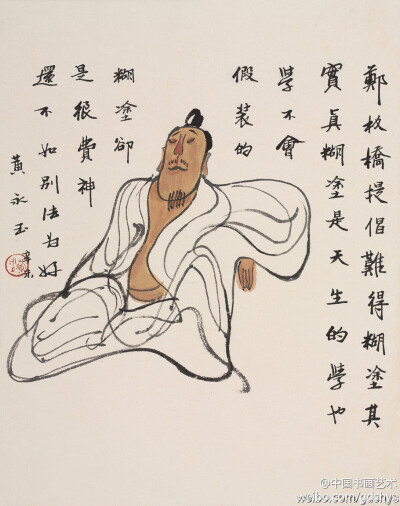 鄭板橋提倡難得糊塗其
實真糊塗是天生的學也
學不會
假裝的
糊塗卻
是很費神
還不如別法为好
黃永玉
@中国书画艺术
weibo.com/gdshys